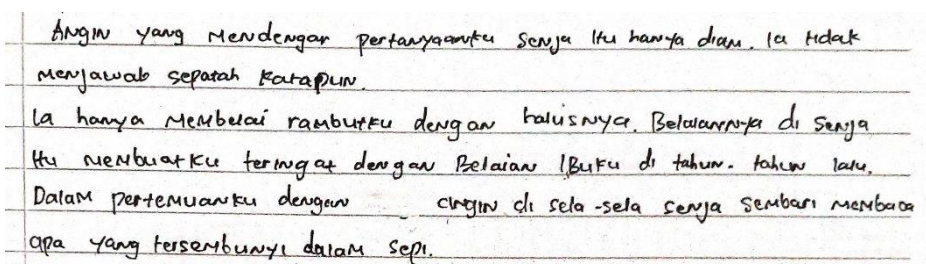 Angin yang mendengar pertanyaanku senja itu hanya diam. Ia tidak
menjawab sepatah katapun.
Ia hanya membelai rambutku dengan halusnya. Belaiannya di senja
itu membuatku teringat dengan Belaian Ibuku di tahun-tahun lalu.
Dalam pertemuanku dengan angin di sela-sela senja sembari membaca
apa yang tersembunyi dalam sepi.